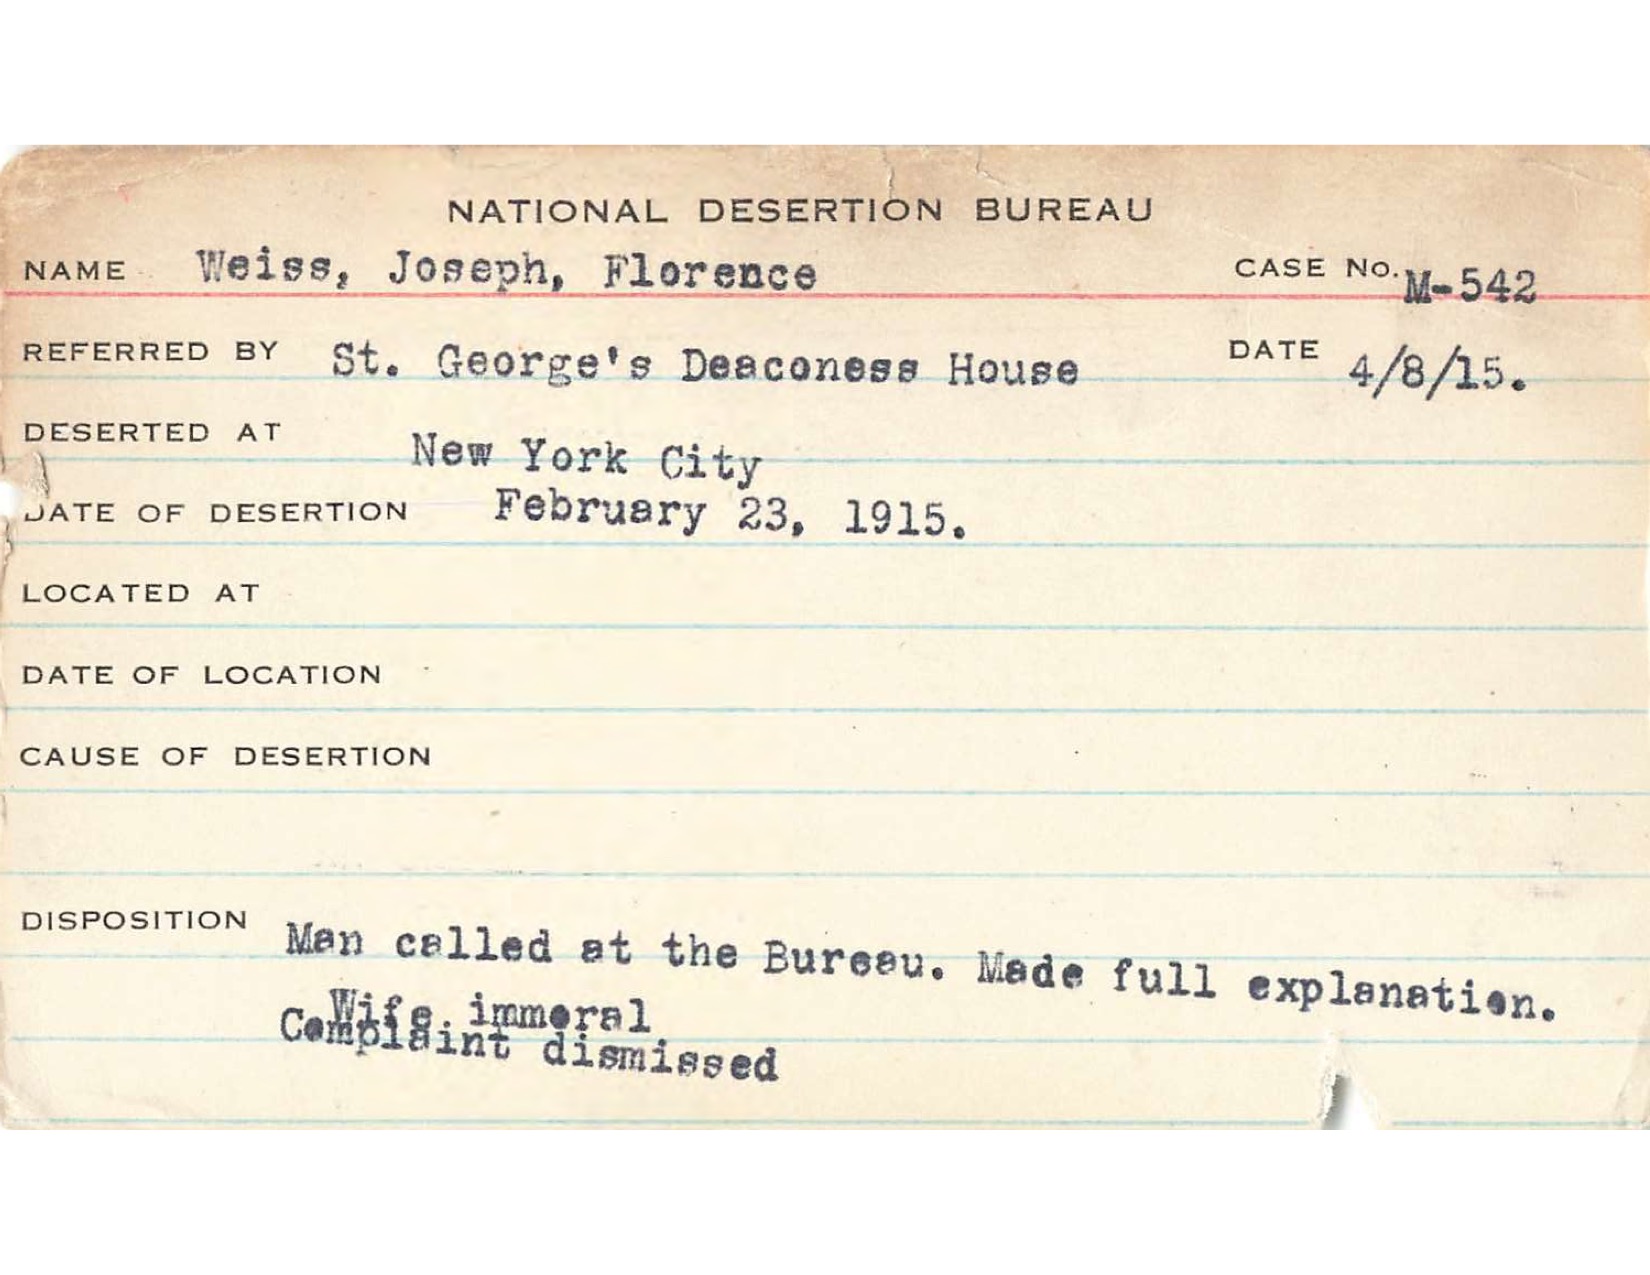 NATIONAL DESERTION BUREAU
NAME Weiss, Joseph, Florence CASE No. M-542
REFERRED BY St. George's Deaconess House DATE 4/8/15.
DESERTED AT New York City
DATE OF DESERTION February 23, 1915.
LOCATED AT
DATE OF LOCATION
CAUSE OF DESERTION
DISPOSITION Man called at the Bureau. Made full explanation.
Wife immoral
Complaint dismissed